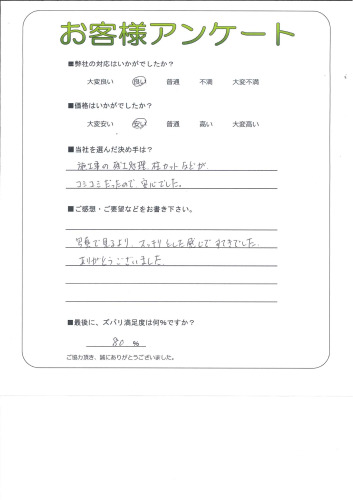 お客様アンケート
■弊社の対応はいかがでしたか？
大変良い 良い 普通 不満 大変不満
■価格はいかがでしたか？
大変安い 安い 普通 高い 大変高い
■当社を選んだ決め手は？
施工事の 処理、柱カットなどが、
コミコミだったので、安心でした。
■ご感想・ご要望などをお書き下さい。
写真で見るより、スッキリとした感じで すてきでした。
ありがとうございました。
■最後に、ズバリ満足度は何%ですか？
80 %
ご協力頂き、誠にありがとうございました。